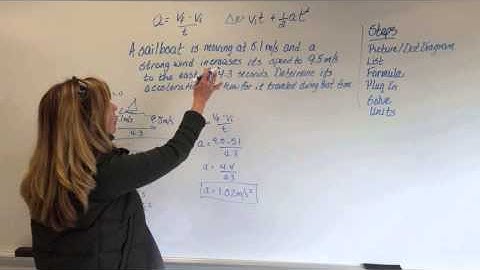 a = Vf - Vi / t    Δx = Vit + 1/2 at²
A sailboat is moving at 5.1 m/s and a
strong wind increases its speed to 9.5 m/s
to the east 4.3 seconds. Determine its
acceleration how far it traveled during that time
Steps
Picture/Dot Diagram
List
Formula
Plug In
Solve
Units
Vf - Vi
t
a = 9.5 - 5.1
4.3
a = 4.4
4.3
a = 1.02 m/s²